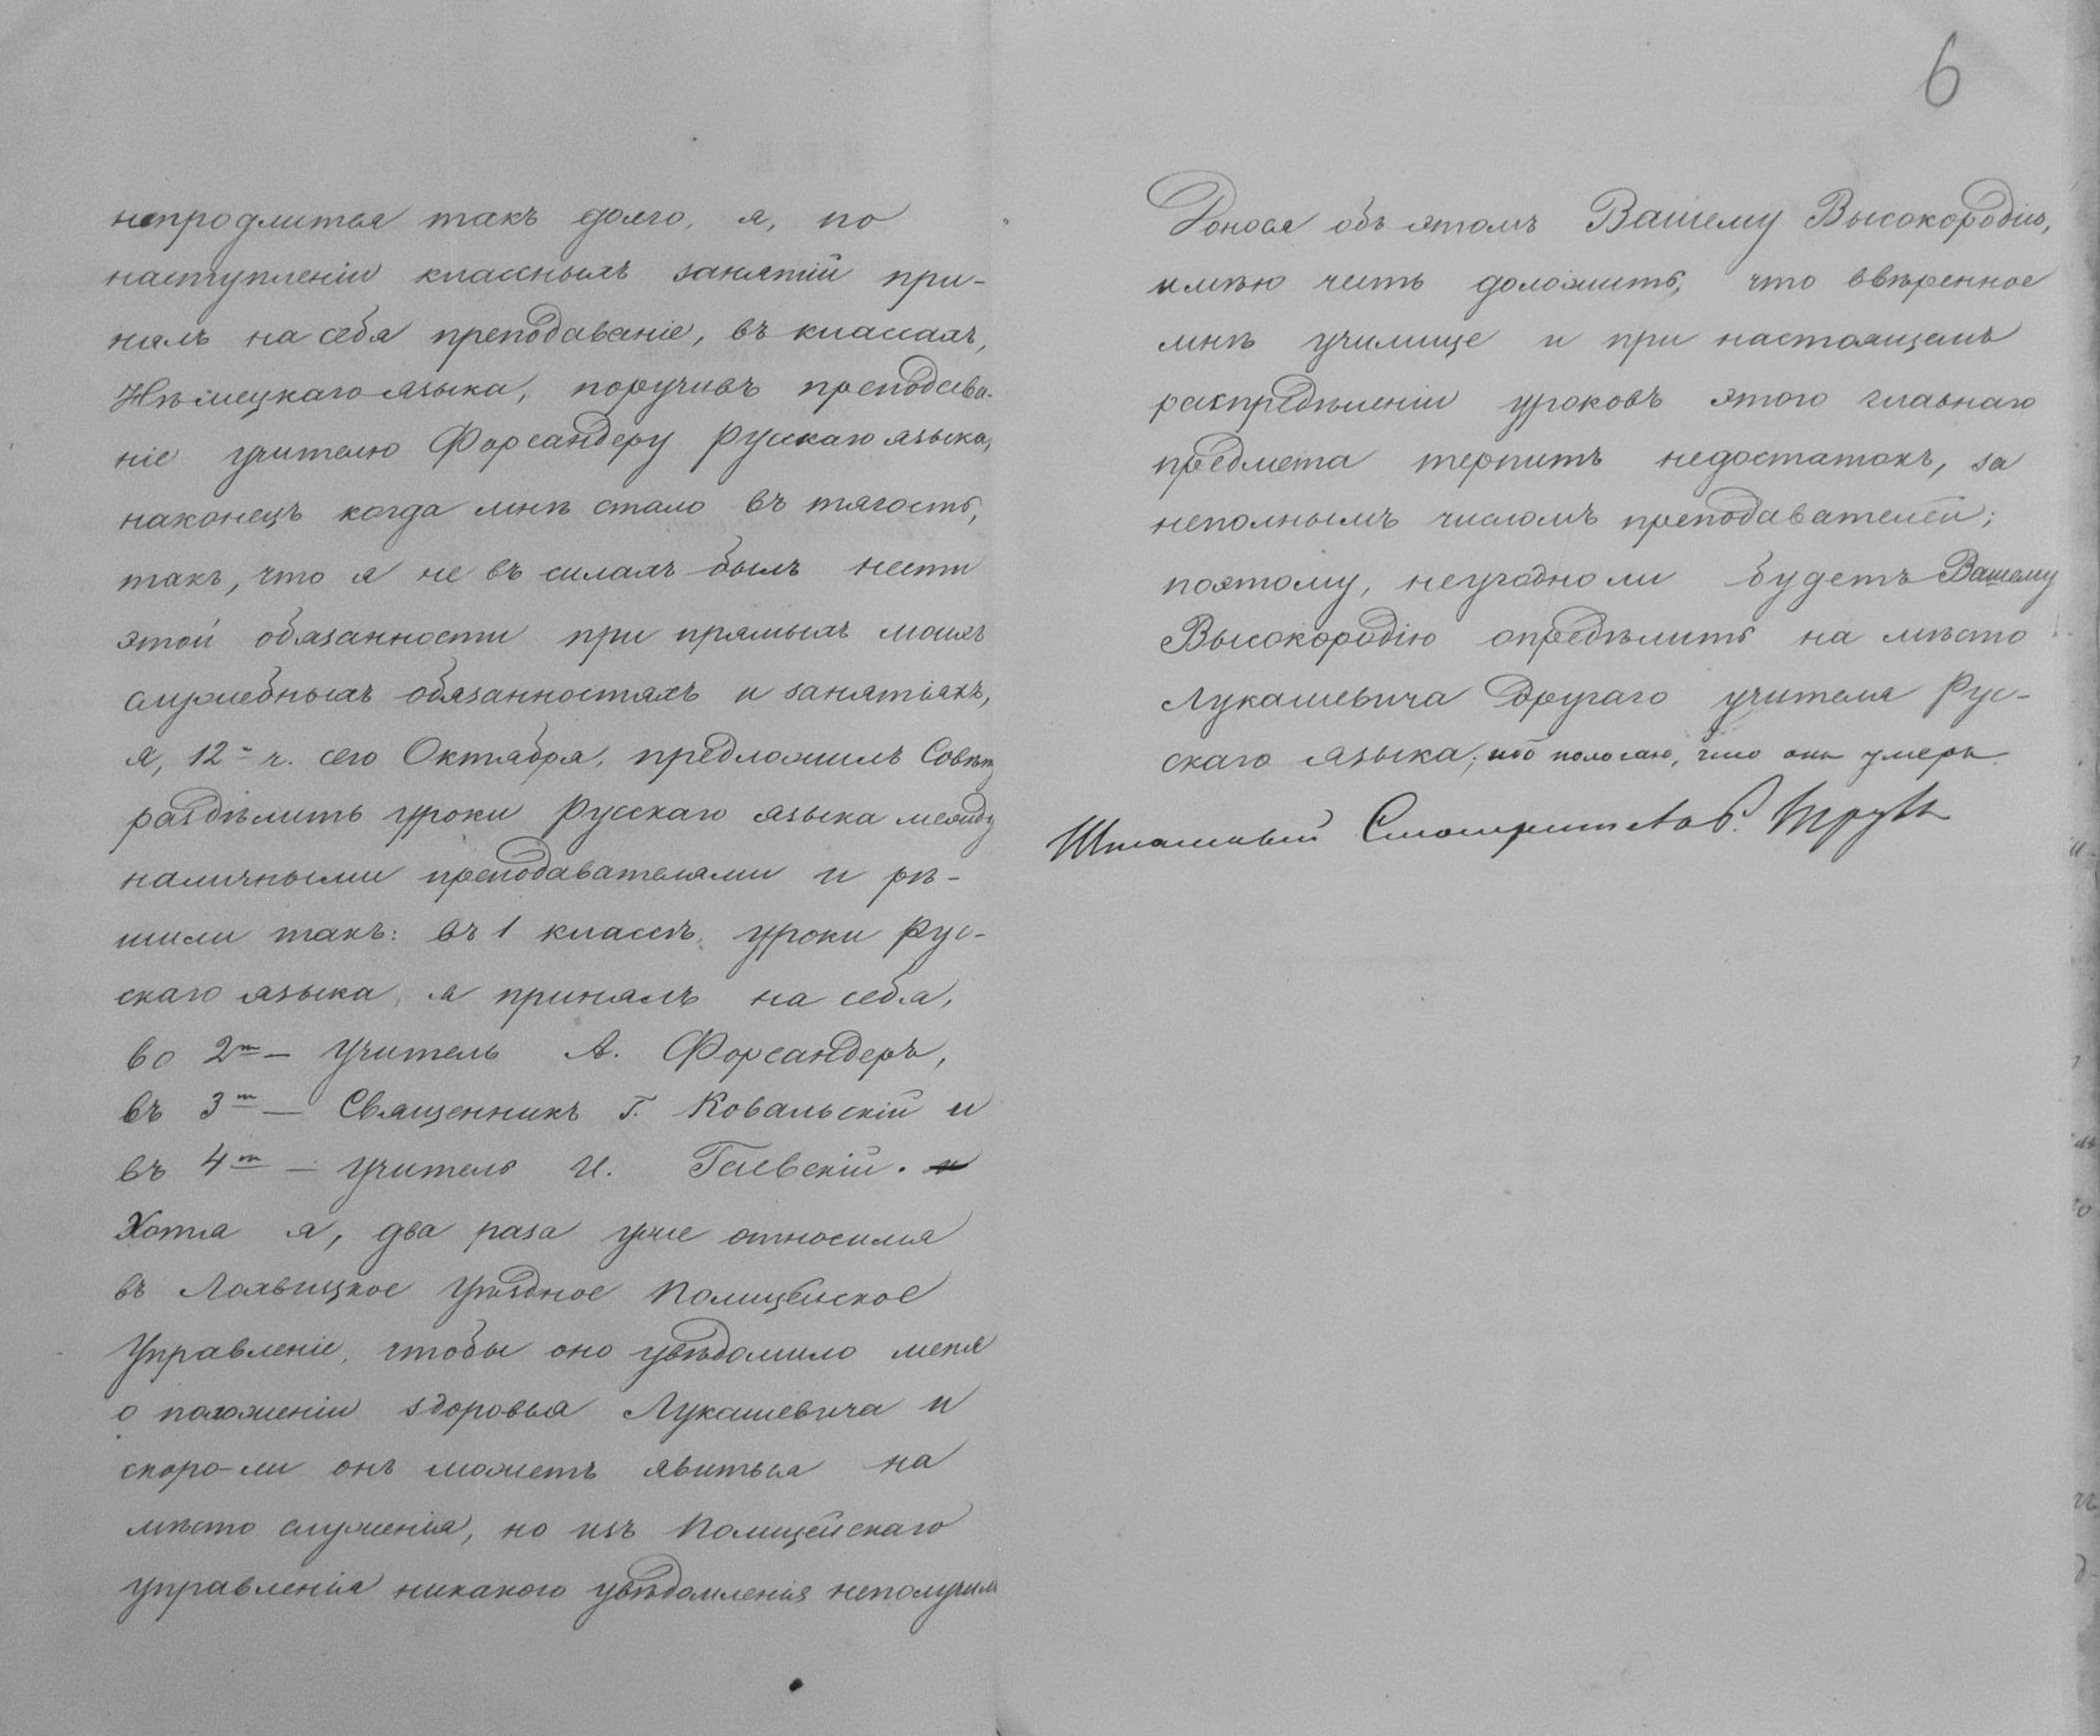 6
непродлится такъ долго, я, по
наступленіи классныхъ занятій при-
нялъ на себя преподаваніе, въ классахъ,
Нѣмецкаго языка, поручивъ преподава-
ніе учителю Форсандеру Русскаго языка,
наконецъ когда мнѣ стало въ тягость,
такъ, что я не въ силахъ былъ нести
этой обязанности при прямыхъ моихъ
служебныхъ обязанностяхъ и занятіяхъ,
я, 12 ч. сего Октября, предложилъ Совѣту
раздѣлить уроки Русскаго языка между
наличными преподавателями и рѣ-
шили такъ: въ 1 классѣ, уроки Рус-
скаго языка, я принялъ на себя,
во 2м — Учитель А. Форсандеръ,
въ 3м — Священникъ Г. Ковальскій и
въ 4м — Учитель И. Гаевскій.
Хотя я, два раза уже относился
въ Лохвицкое Уѣздное Полицейское
Управленіе, чтобы оно увѣдомило меня
о положеніи здоровья Лукашевича и
скоро-ли онъ можетъ явиться на
мѣсто служенія, но изъ Полицейскаго
управленія никакого увѣдомленія неполучилъ
Донося объ этомъ Вашему Высокородію,
имѣю честь доложить, что ввѣренное
мнѣ училище и при настоящемъ
распредѣленіи уроковъ этого главнаго
предмета терпитъ недостатокъ, за
неполнымъ числомъ преподавателей;
поэтому, неугодно ли будетъ Вашему
Высокородію опредѣлить на мѣсто
Лукашевича другаго учителя Рус-
скаго языка; ибо полагаю, что онъ умеръ.
Штатный Смотритель